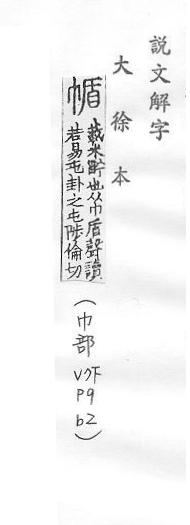 說文解字
大徐本
㡒 載米䏧也从巾盾聲讀
若易屯卦之屯陟倫切
(巾部 V7下 P9 b2)